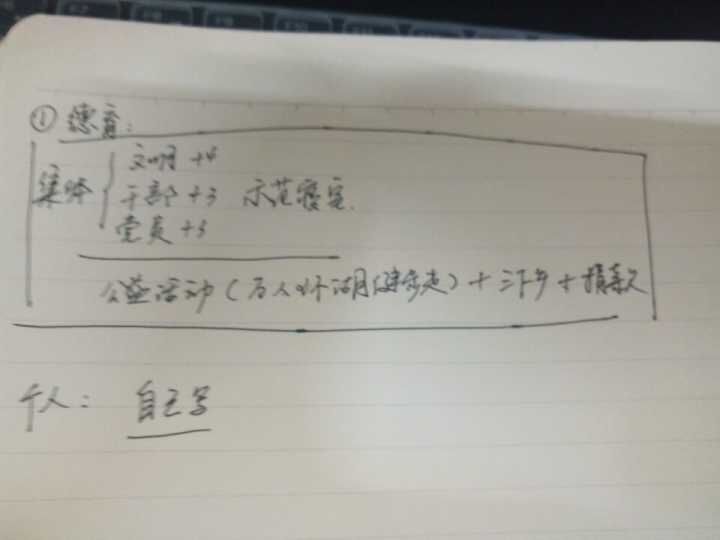 ① 德育:
集体
文明 +4
干部 +3 示范寝室.
党员 +3
公益活动(万人环湖健步走)+三下乡+捐款
个人: 自主学